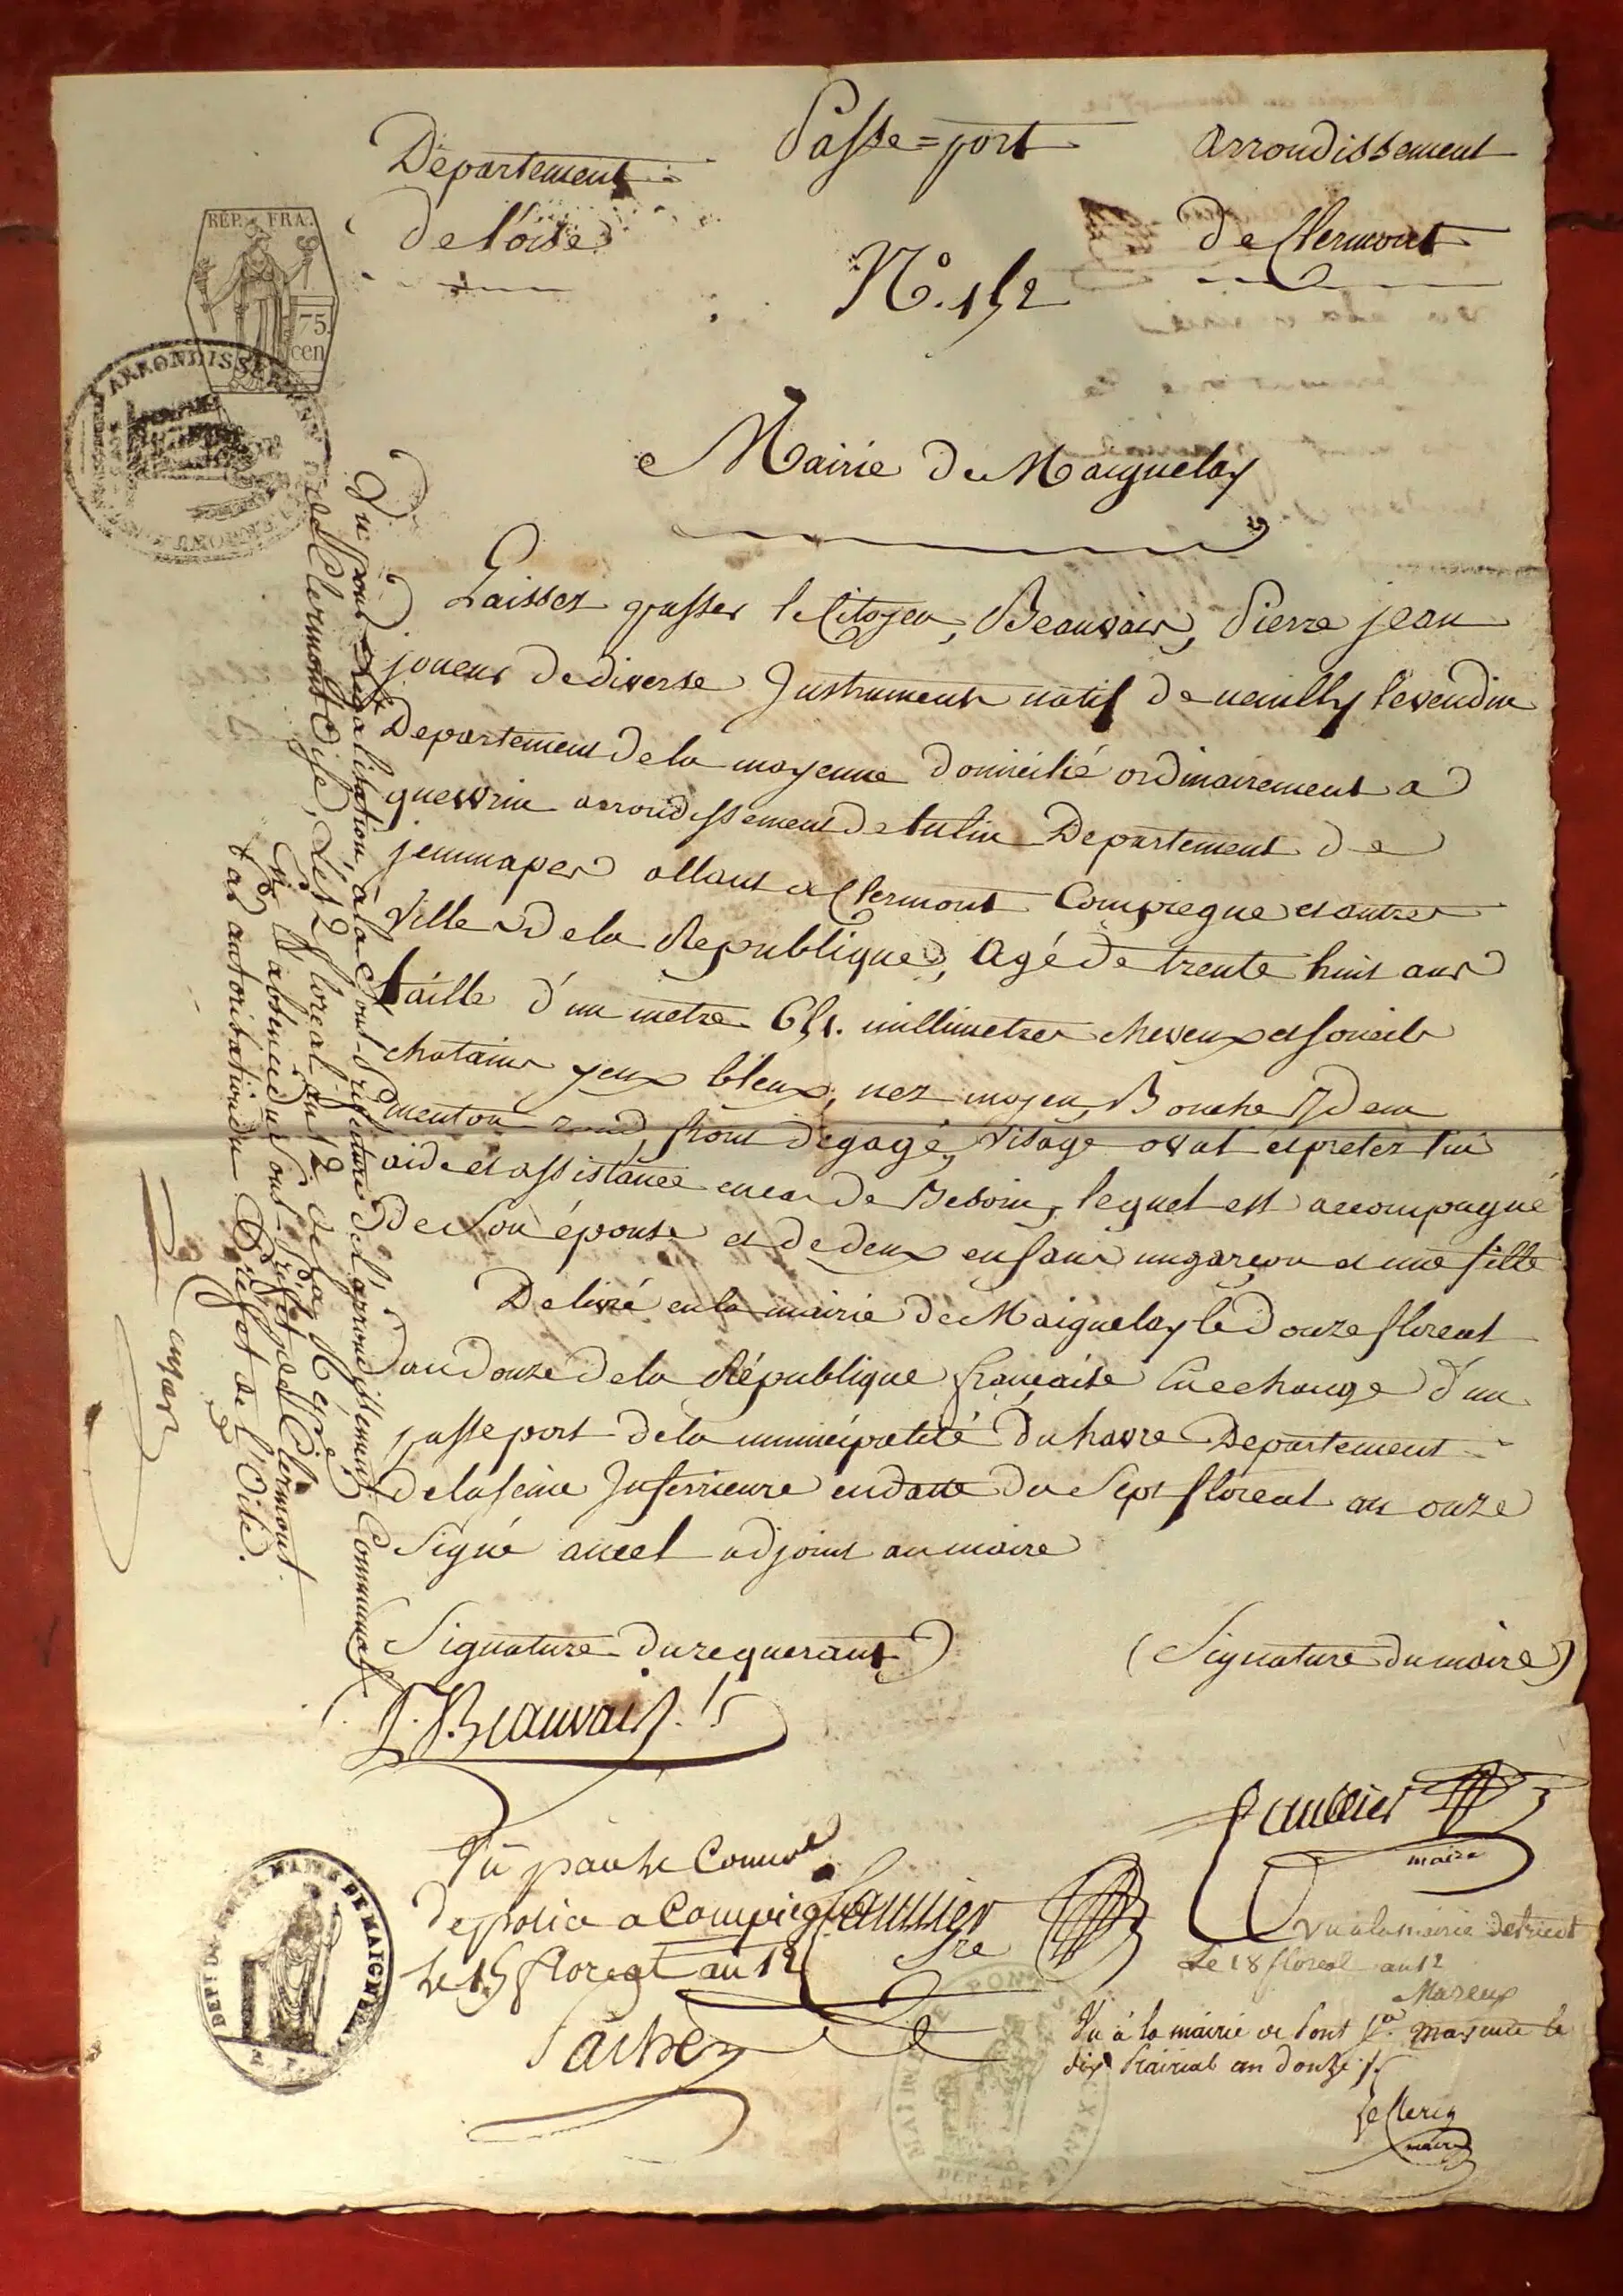 Département
de l'oise
Passe=port
Arrondissement
de Clermont
N.° 152
RÉP. FRA.
75
cen
ARRONDISSEMENT
Mairie de Maignelay
Laissez passer le Citoyen, Beauvais, Pierre jean
joueur de diverse Instruments natif de neuilly levendin
Departement de la mayenne domicilié ordinairement a
quevrin arrondissement de tulin Departement de
jemmapes allant a Clermont Compiegne et autres
Villes de la Republique, agé de trente huit ans
taille d'un metre 651. millimetres cheveux et sourcils
chatains yeux bleux, nez moyen, Bouche Idem
menton rond, front degagé, visage oval et pretez lui
aide et assistance en cas de Besoin, lequel est accompagné
de Son épouse et de deux enfans un garcon et une fille
Delivré en la mairie de Maignelay le douze floreal
an douze de la République francaise En echange d'un
passeport de la municipalité du havre Departement
de la seine Inferieure en datte du Sept floreal an onze
Signé ancel adjoint au maire
(Signature du requerant)
(Signature du maire)
P. J. Beauvais
maire
Vu pour Légalisation, à la Sous-Préfecture de l'arrondissement Communal
de Clermont Oise, Le 12 floreal an 12 de la Répe
En l'absence du Sous-Préfet de Clermont
Par autorisation du Préfet de l'Oise.
Vu par le Comre
de police a Compiegne
le 15 floreal an 12
Vu a la mairie de
Le 18 floreal an 12
Mareux
Vu à la mairie de Pont Ste. Maxence le
dix Prairial an douze
LeClercq
maire
MAIRIE DE PONT STE MAXENCE